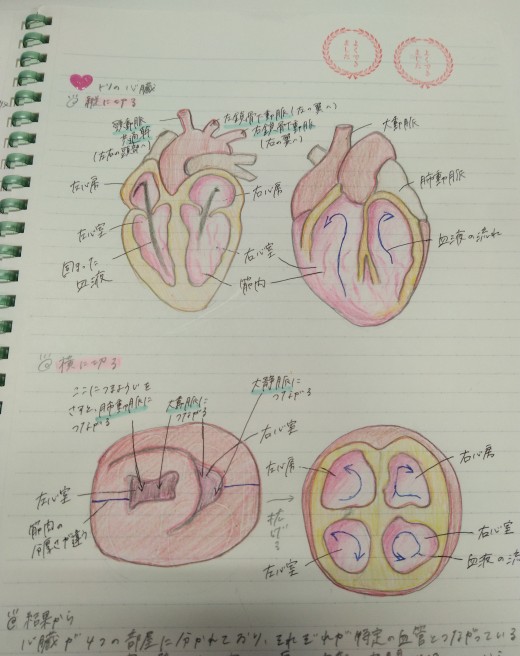 よくできました
よくできました
トリの心臓
縦に切る
頸動脈
左鎖骨下動脈(左の翼へ)
右鎖骨下動脈
(右の翼へ)
(左右の頭部へ)
大動脈
肺動脈
左心房
右心房
左心室
右心室
固まった
血液
筋肉
血液の流れ
横に切る
ここにつまようじを
さすと、肺動脈に
つながる
大動脈に
つながる
大静脈に
つながる
右心室
左心室
筋肉の
分厚さが違う
拡げる
左心房
右心房
左心室
右心室
血液の流
結果から
心臓が4つの部屋に分かれており、それぞれが特定の血管とつながっている